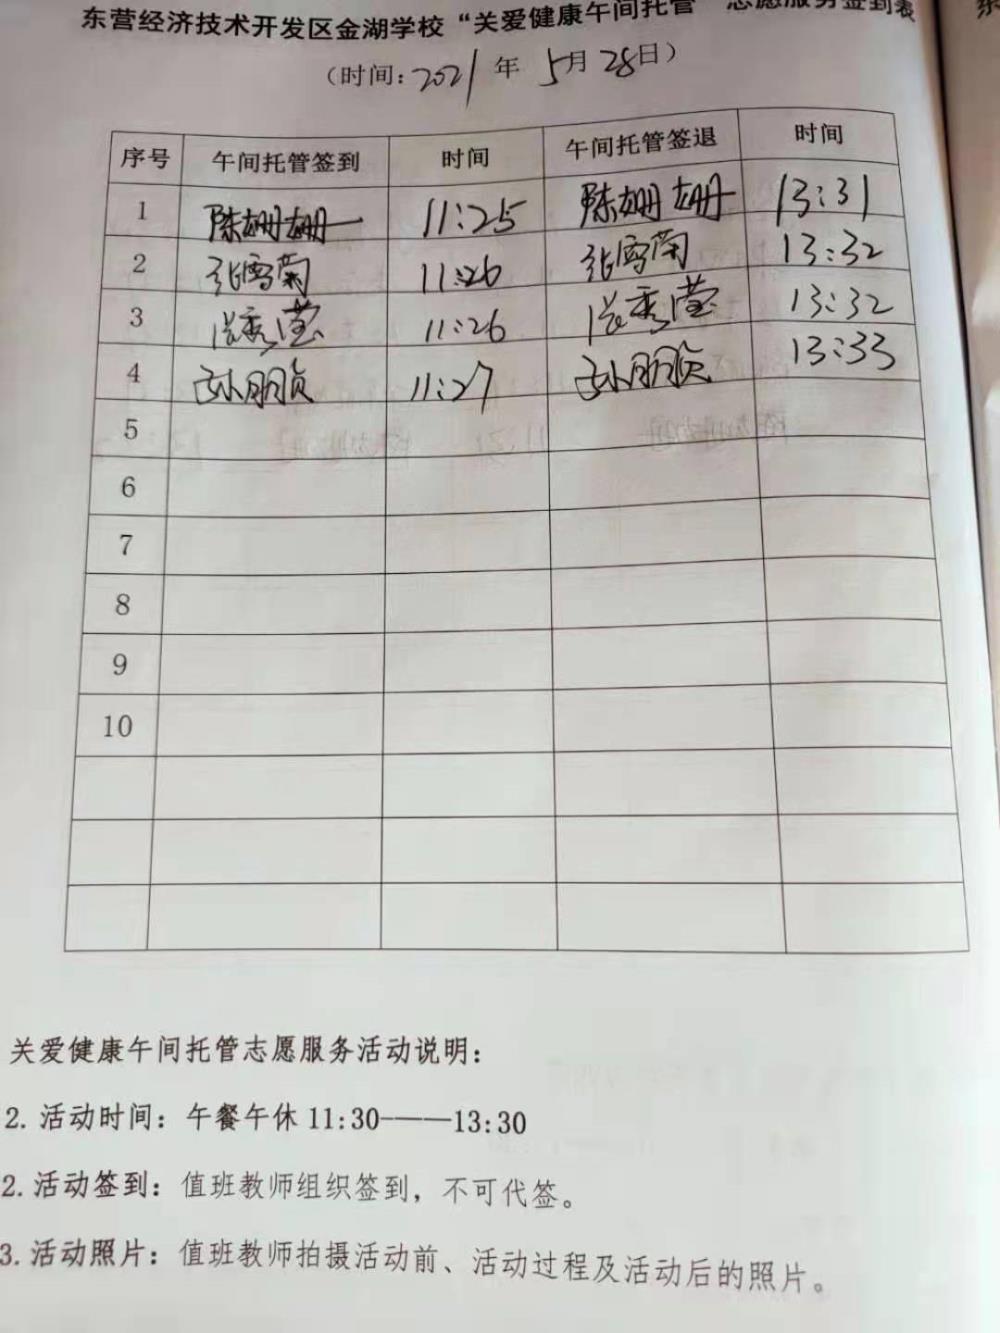 东营经济技术开发区金湖学校“关爱健康午间托管”志愿服务签到表
(时间:2021年5月28日)
序号 午间托管签到 时间 午间托管签退 时间
1 陈姗姗 11:25 陈姗姗 13:31
2 张雪菊 11:26 张雪菊 13:32
3 秀莹 11:26 秀莹 13:32
4 孙朋贞 11:27 孙朋贞 13:33
5
6
7
8
9
10
关爱健康午间托管志愿服务活动说明:
2.活动时间:午餐午休11:30——13:30
2.活动签到:值班教师组织签到,不可代签。
3.活动照片:值班教师拍摄活动前、活动过程及活动后的照片。